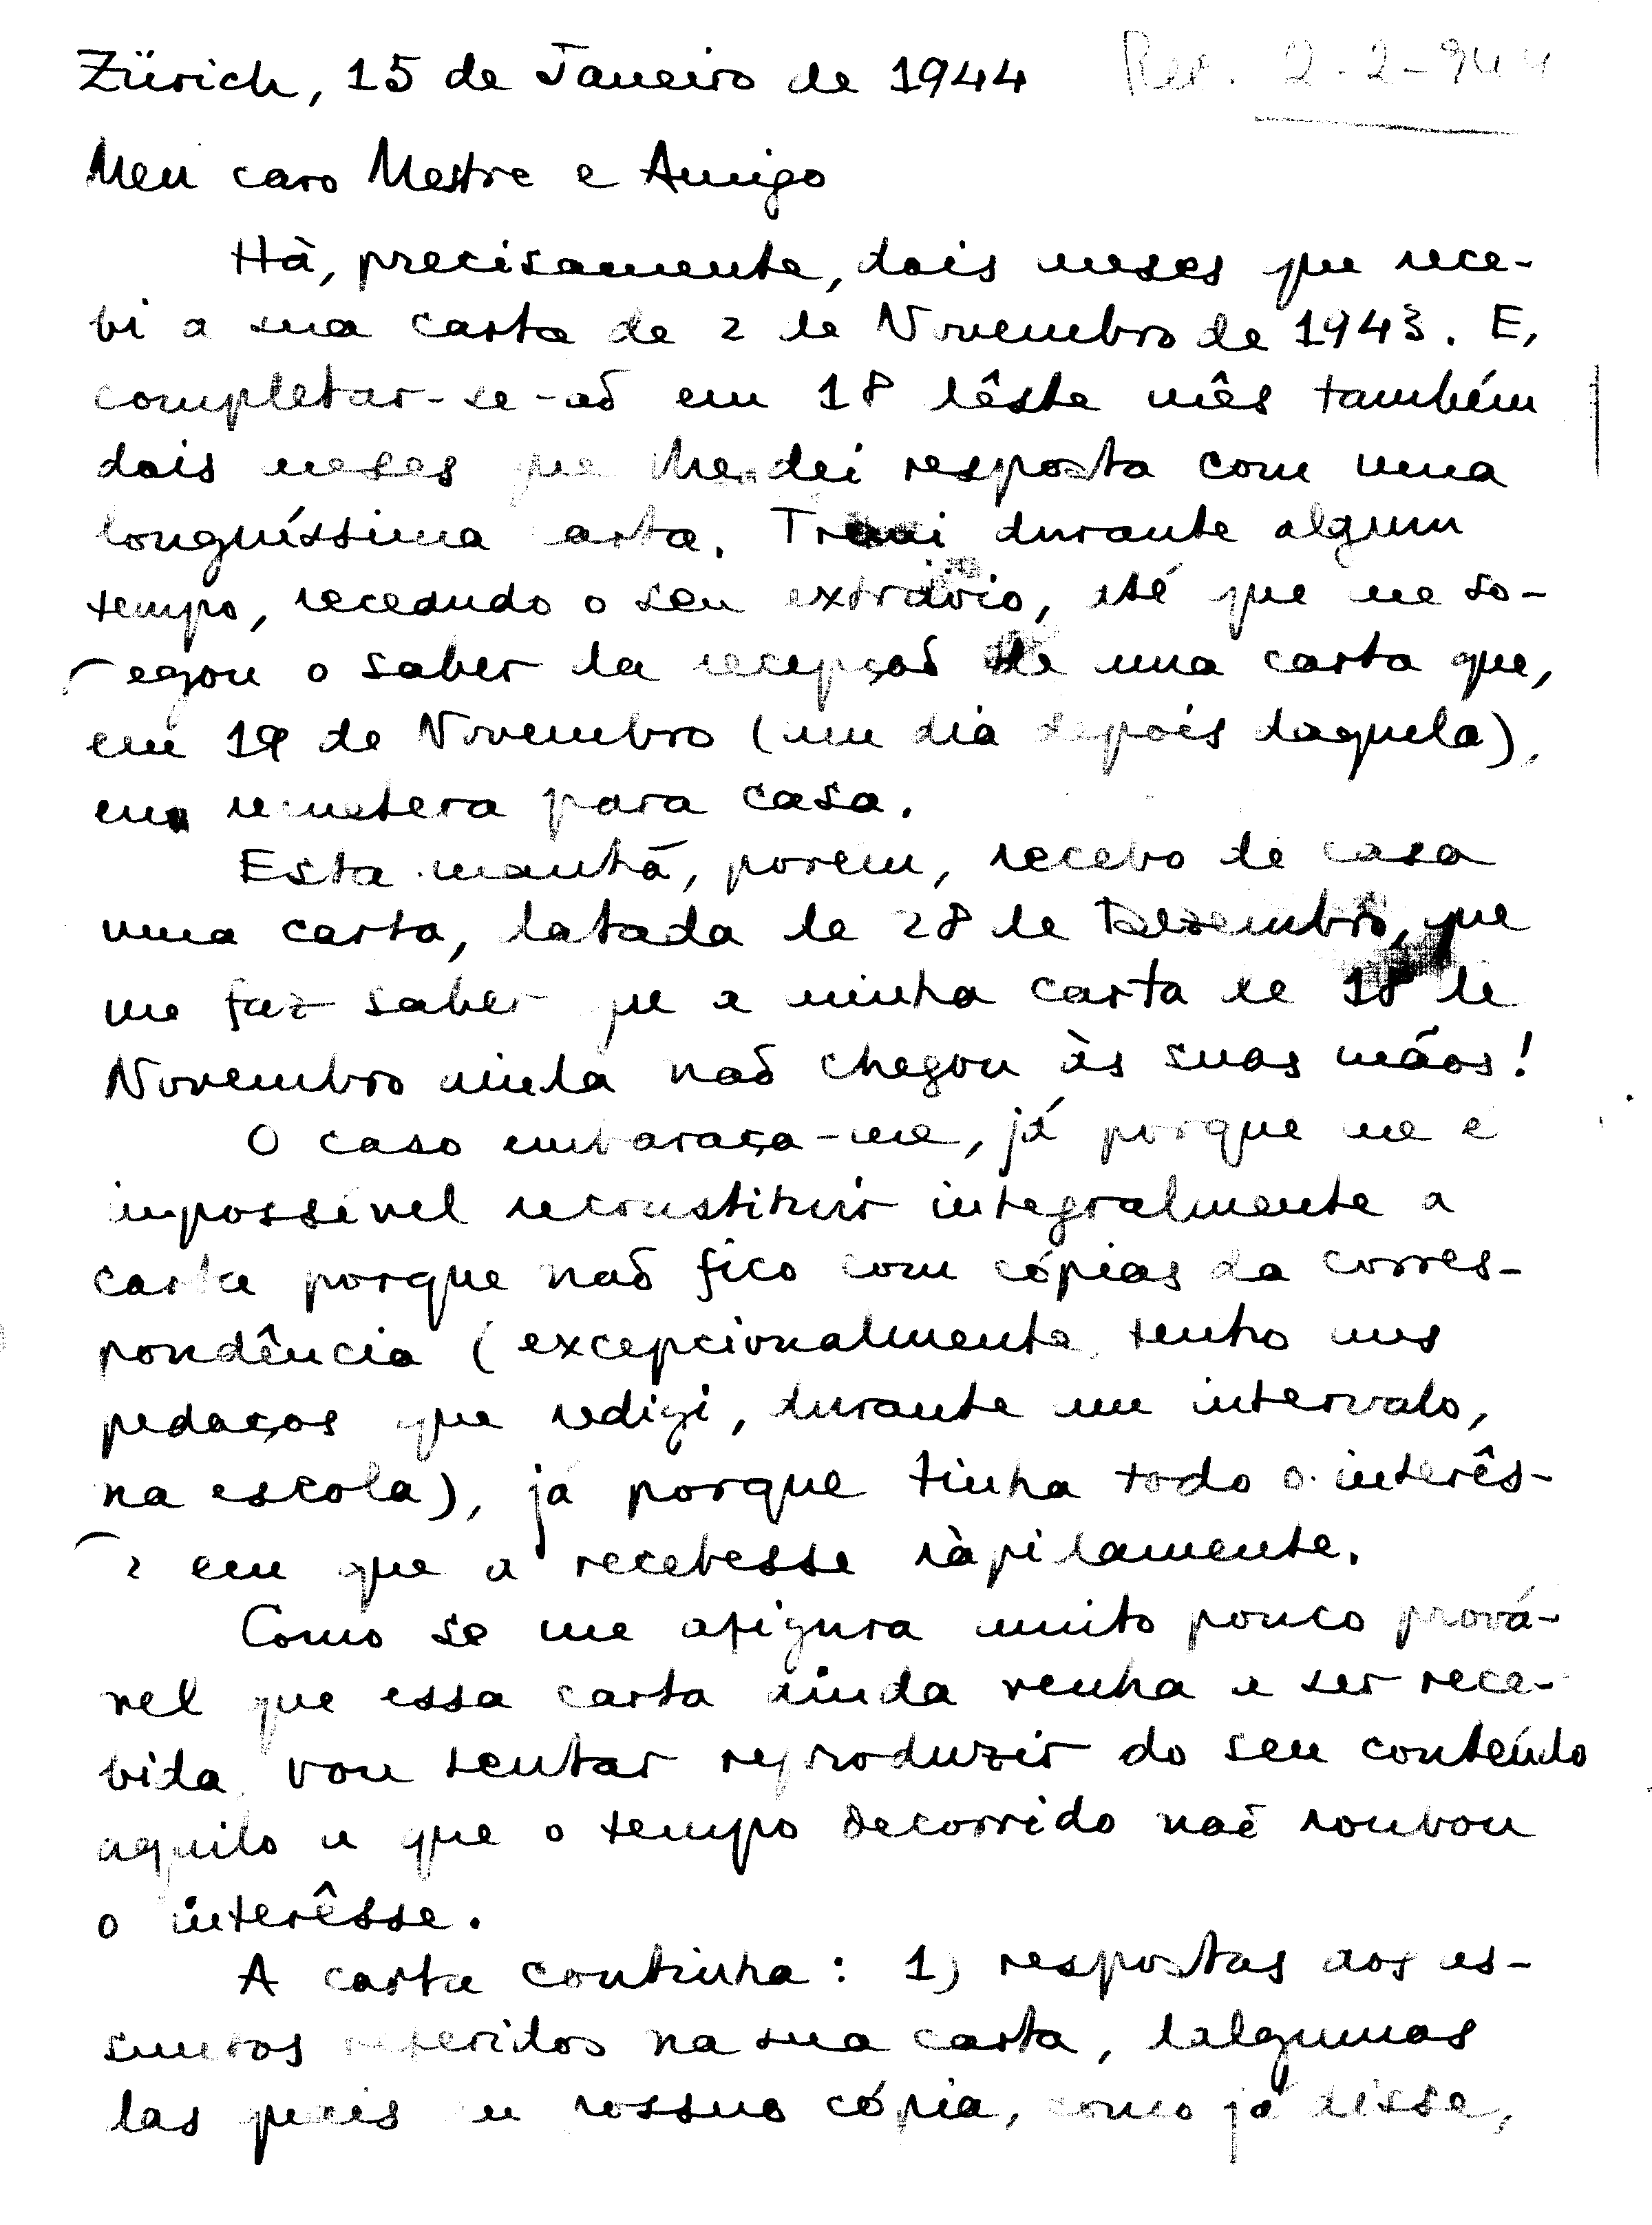 Zürich, 15 de Janeiro de 1944 Rec. 2-2-944
Meu caro Mestre e Amigo
Hà, precisamente, dois meses que rece-
bi a sua carta de 2 de Novembro de 1943. E,
completar-se-aõ em 18 dêste mês também
dois meses que lhe dei resposta com uma
longuíssima carta. Tremi durante algum
tempo, receando o seu extràvio, até que me so-
egou o saber da recepçaõ de uma carta que,
em 19 de Novembro (um dia depois daquela),
eu remetera para casa.
Esta manhã, porém, recebo de casa
uma carta, datada de 28 de Dezembro, que
me faz saber que a minha carta de 18 de
Novembro ainda naõ chegou às suas mãos!
O caso embaraça-me, já porque me é
impossível reconstituir integralmente a
carta porque naõ fico com cópias da corres-
pondência (excepcionalmente, tenho uns
pedaços que redigi, durante um intervalo,
na escola), já porque tinha todo o interês-
e em que a recebesse ràpidamente.
Como se me afigura muito pouco prová-
vel que essa carta ainda venha a ser rece-
bida, vou tentar reproduzir do seu conteúdo
aquilo a que o tempo decorrido naõ roubou
o interêsse.
A carta continha: 1) respostas aos as-
suntos referidos na sua carta, dalgumas
das quais eu possuo cópia, como já disse,